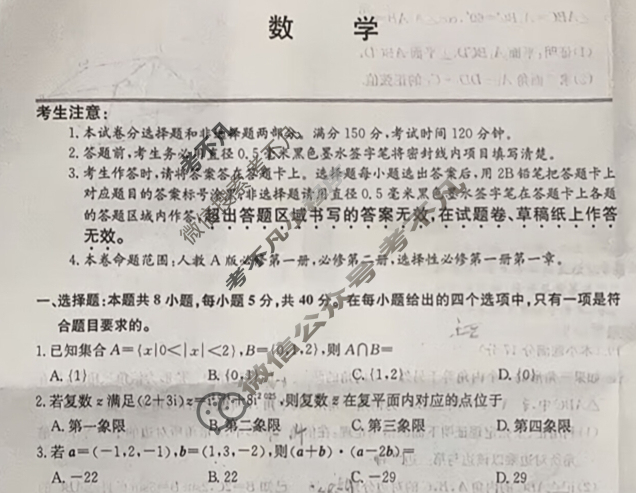 数 学
考生注意:
1. 本试卷分选择题和非选择题两部分。满分 150 分,考试时间 120 分钟。
2. 答题前,考生务必用直径 0.5 毫米黑色墨水签字笔将密封线内项目填写清楚。
3. 考生作答时,请将答案答在答题卡上。选择题每小题选出答案后,用 2B 铅笔把答题卡上
对应题目的答案标号涂黑;非选择题请用直径 0.5 毫米黑色墨水签字笔在答题卡上各题
的答题区域内作答,超出答题区域书写的答案无效,在试题卷、草稿纸上作答
无效。
4. 本卷命题范围:人教 A 版必修第一册,必修第二册,选择性必修第一册第一章。
一、选择题:本题共 8 小题,每小题 5 分,共 40 分。在每小题给出的四个选项中,只有一项是符
合题目要求的。
1. 已知集合 A={x|0<|x|<2},B={0,1,2},则 A∩B=
A. {1} B. {0,1} C. {1,2} D. {0}
2. 若复数 z 满足(2+3i)z= ,则复数 z 在复平面内对应的点位于
A. 第一象限 B. 第二象限 C. 第三象限 D. 第四象限
3. 若 a=(-1,2,-1),b=(1,3,-2),则(a+b)·(a-2b)=
A. -22 B. 22 C. -29 D. 29
微信公众号考不凡